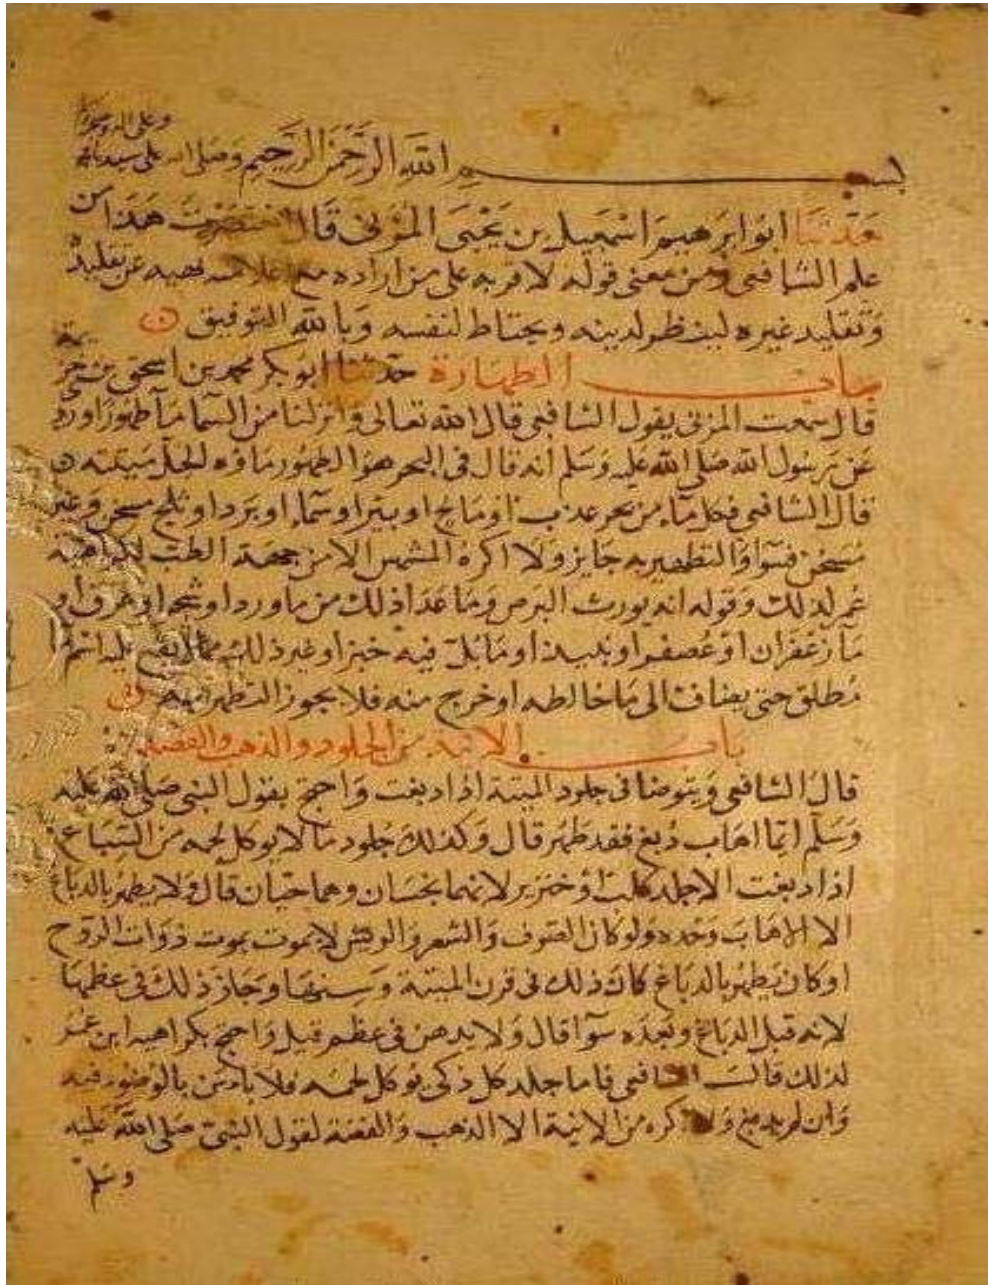 وعلى اله وصحبه
بسم الله الرحمن الرحيم وصلى الله على سيدنا محمد
حدثنا ابو ابرهيم اسمعيل بن يحيى المزنى قال اختصرت هذا من
علم الشافعى ومن معنى قوله لاقربه على من اراده مع اعلاميه نهيه عن تقليده
وتقليد غيره لينظر لدينه ويحتاط لنفسه وبالله التوفيق
باب الطهارة حدثنا ابو بكر محمد بن اسحق بن خزيمة
قال سمعت المزنى يقول الشافعى قال الله تعالى وانزلنا من السما مآ طهورا وروى
عن رسول الله صلى الله عليه وسلم انه قال فى البحر هو الطهور ماؤه الحل ميتته
قال الشافعى فكل مآء من بحر عذب او مالح او بير او سمآء او برد او ثلج مسخن وغير
مسخن فسوآ والتطهير به جايز ولا اكره المشمس الا من جهة الطب لكراهية
عمر لذلك وقوله انه يورث البرص وما عدا ذلك من ماورد او شجر او عرق او
مآ زعفران او عصفر او نبيذ او مآ بل فيه خبز او غير ذلك مما لا يقع عليه اسم مآ
مطلق حتى يضاف الى ما خالطه او خرج منه فلا يجوز التطهر به
باب الانية من الجلود والذهب والفضة
قال الشافعى ويتوضا فى جلود الميتة اذا دبغت واحتج بقول النبى صلى الله عليه
وسلم ايما اهاب دبغ فقد طهر قال وكذلك جلود ما لا يوكل لحمه من السباع
اذا دبغت الا جلد كلب او خنزير لانهما نجسان وهما حيان قال ولا يطهر بالدباغ
الا الاهاب وحده ولو كان الصوف والشعر والريش لا يموت بموت ذوات الروح
او كان يطهر بالدباغ كان ذلك فى قرن الميتة وسنها وجاز ذلك فى عظمها
لانه قبل الدباغ وبعده سوآ قال ولا يدهن فى عظم فيل واحتج بكراهية ابن عمر
لذلك قال الشافعى فاما جلد كل ذكى يوكل لحمه فلا باس بالوضوء فيه
وان لم يدبغ ولا اكره من الانية الا الذهب والفضة لقول النبى صلى الله عليه
وسلم